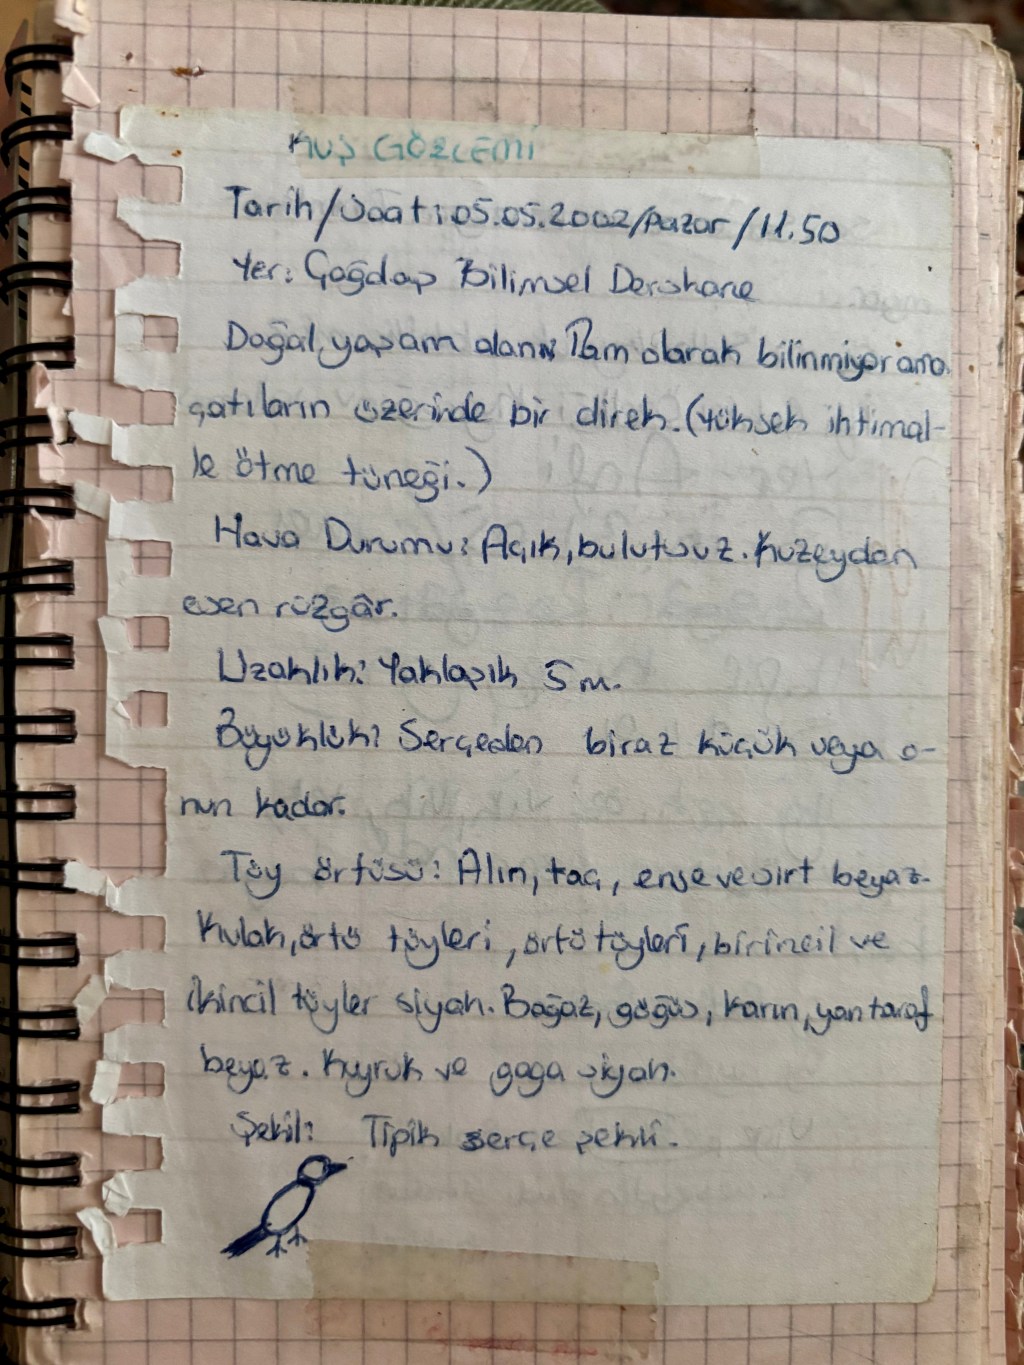 KUŞ GÖZLEMİ
Tarih/Saat: 05.05.2002/Pazar/11.50
Yer: Çağdaş Bilimsel Dershane
Doğal yaşam alanı: Tam olarak bilinmiyor ama
çatıların üzerinde bir direk. (Yüksek ihtimal-
le ötme tüneği.)
Hava Durumu: Açık, bulutsuz. Kuzeyden
esen rüzgâr.
Uzaklık: Yaklaşık 5 m.
Büyüklük: Serçeden biraz küçük veya o-
nun kadar.
Tüy örtüsü: Alın, taç, ense ve sırt beyaz.
Kulak, örtü tüyleri, örtü tüyleri, birincil ve
ikincil tüyler siyah. Boğaz, göğüs, karın, yan taraf
beyaz. Kuyruk ve gaga siyah.
Şekil: Tipik serçe şekli.